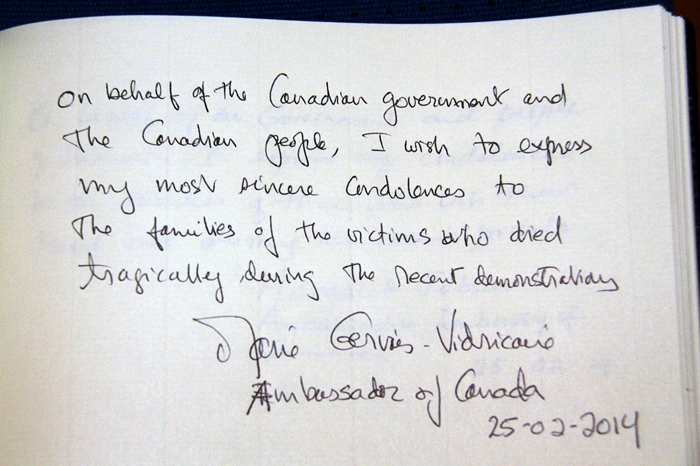 On behalf of the Canadian government and
the Canadian people, I wish to express
my most sincere condolences to
the families of the victims who died
tragically during the recent demonstrations
Marie Gervais-Vidricaire
Ambassador of Canada
25-02-2014